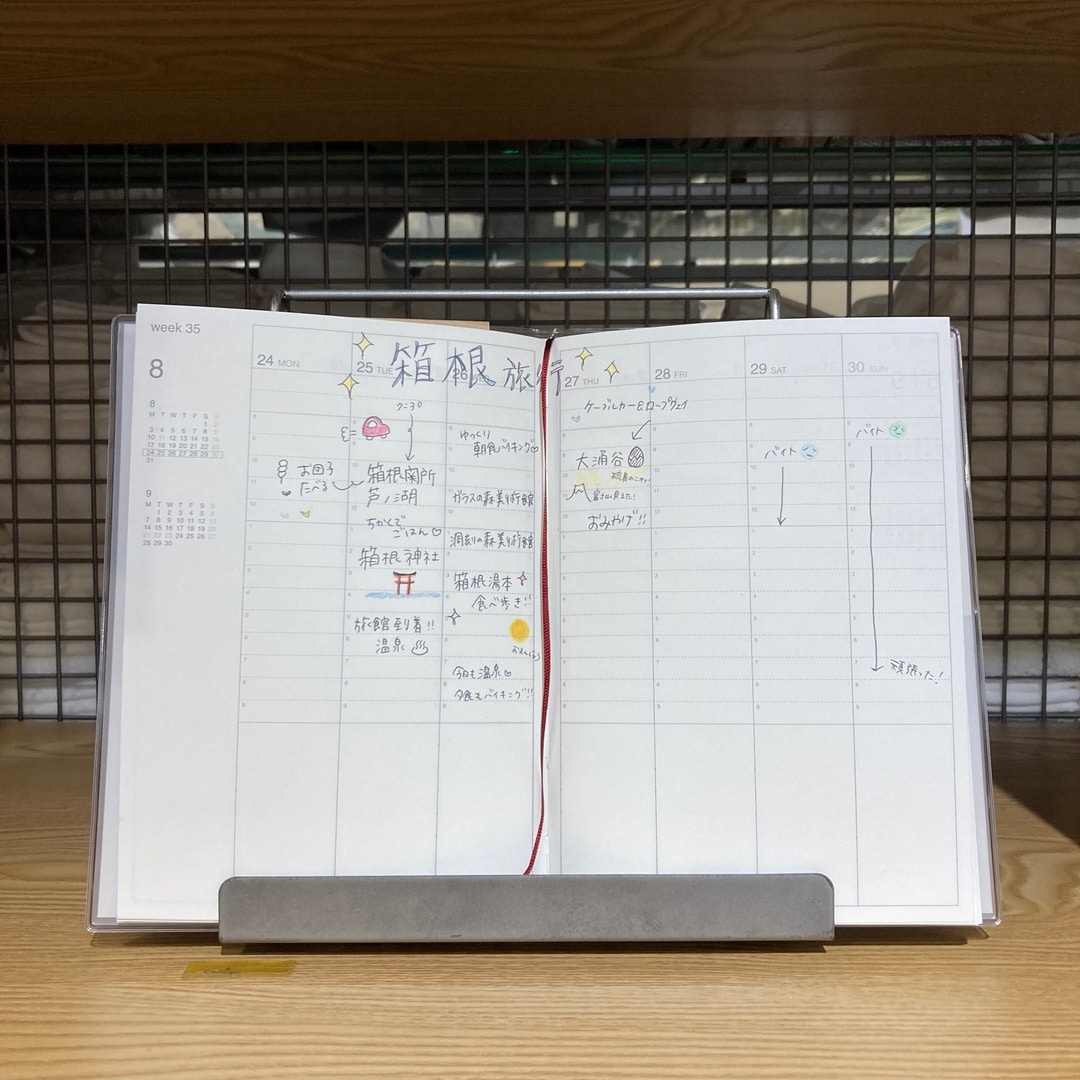 week 35
8
24 MON
25 TUE
26
27 THU
28 FRI
29 SAT
30 SUN
箱根旅行
8
M T W T F S S
1 2
3 4 5 6 7 8 9
10 11 12 13 14 15 16
17 18 19 20 21 22 23
24 25 26 27 28 29 30
31
9
M T W T F S S
1 2 3 4 5 6
7 8 9 10 11 12 13
14 15 16 17 18 19 20
21 22 23 24 25 26 27
28 29 30
お団子
たべる
7:30
箱根関所
芦ノ湖
ちかくで
ごはん♡
箱根神社
旅館到着!!
温泉♨
ゆっくり
朝食バイキング♡
ガラスの森美術館
彫刻の森美術館
箱根湯本
食べ歩き!!
今日も温泉♡
夕食もバイキング!!
ケーブルカー&ロープウェイ
大涌谷
富士山見えた!
おみやげ!!
バイト
バイト
頑張った!